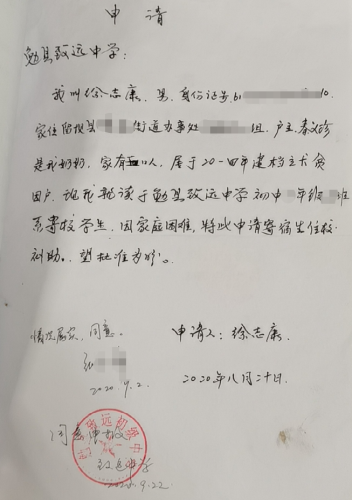 申 请
勉县致远中学：
我叫徐志康，男，身份证号61 10，
家住 县 街道办事处 组，户主
是我奶奶，家有 口人，属于20一四年建档立卡贫
困户，现我就读于勉县致远中学初中 年级 班
系寄校学生，因家庭困难，将此申请寄宿生住校
补助。望批准为盼。
情况属实，同意。
申请人：徐志康
2020.9.2.
2020年八月二十日
同意
致远中学
2020.9.22